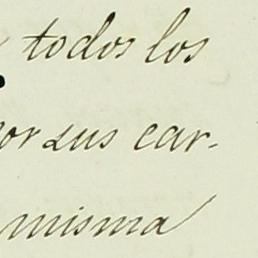 todos los
por sus car-
misma